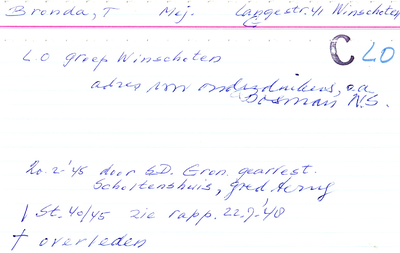 Bronda, T Mej. Langestr. 41 Winschoten
C LO
LO groep Winschoten
adres voor onderduikers, o.a.
Bosman N.S.
20-2-'45 door S.D. Gron. gearrest.
Scholtenshuis, gred.
St. 40/45 zie rapp. 22-7-'48
† overleden